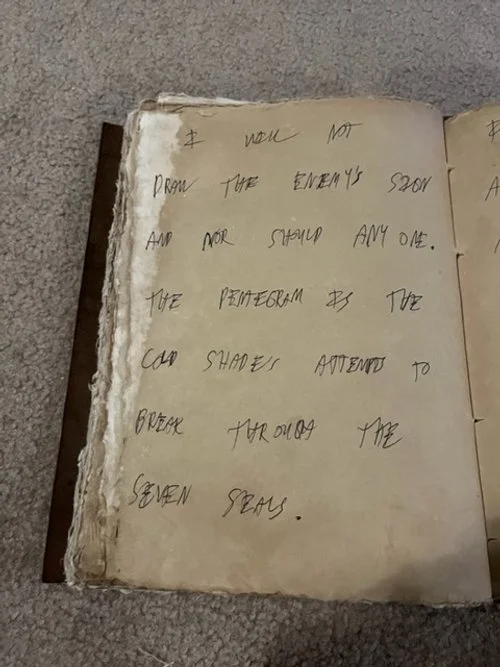 I WILL NOT
DRAW THE ENEMY'S SIGN
AND NOR SHOULD ANY ONE.
THE PENTEGRAM IS THE
COLD SHADE'S ATTEMPT TO
BREAK THROUGH THE
SEVEN SEALS.